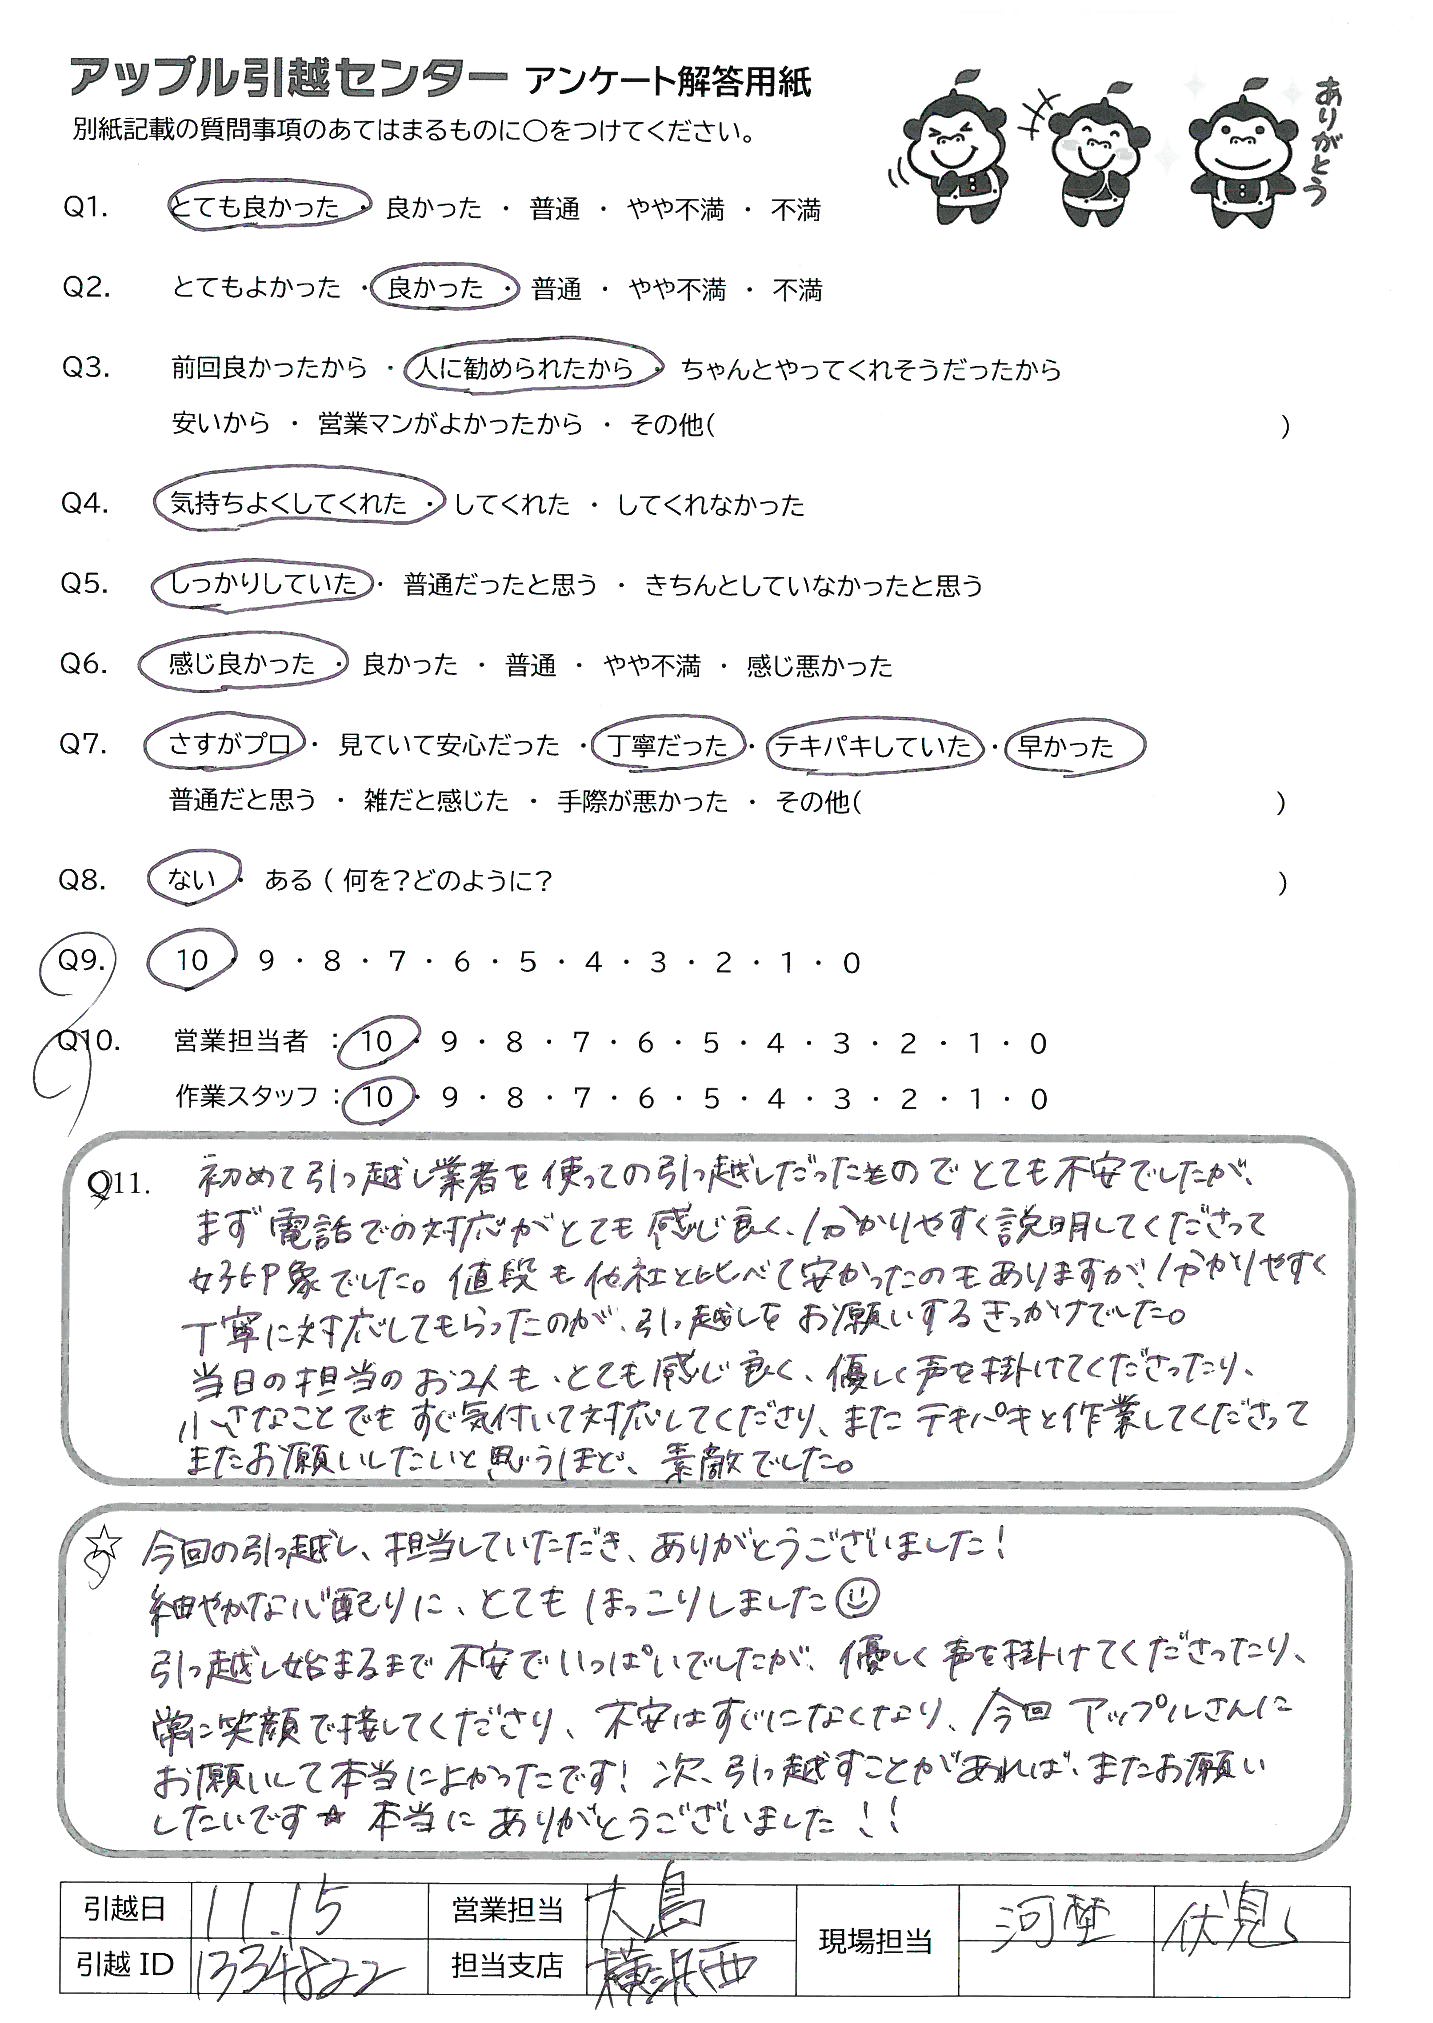 アップル引越センター アンケート解答用紙
別紙記載の質問事項のあてはまるものに〇をつけてください。
ありがとう
Q1. とても良かった ・ 良かった ・ 普通 ・ やや不満 ・ 不満
Q2. とてもよかった ・ 良かった ・ 普通 ・ やや不満 ・ 不満
Q3. 前回良かったから ・ 人に勧められたから ・ ちゃんとやってくれそうだったから
安いから ・ 営業マンがよかったから ・ その他( )
Q4. 気持ちよくしてくれた ・ してくれた ・ してくれなかった
Q5. しっかりしていた ・ 普通だったと思う ・ きちんとしていなかったと思う
Q6. 感じ良かった ・ 良かった ・ 普通 ・ やや不満 ・ 感じ悪かった
Q7. さすがプロ ・ 見ていて安心だった ・ 丁寧だった ・ テキパキしていた ・ 早かった
普通だと思う ・ 雑だと感じた ・ 手際が悪かった ・ その他( )
Q8. ない ・ ある ( 何を?どのように? )
Q9. 10 ・ 9 ・ 8 ・ 7 ・ 6 ・ 5 ・ 4 ・ 3 ・ 2 ・ 1 ・ 0
Q10. 営業担当者 : 10 ・ 9 ・ 8 ・ 7 ・ 6 ・ 5 ・ 4 ・ 3 ・ 2 ・ 1 ・ 0
作業スタッフ : 10 ・ 9 ・ 8 ・ 7 ・ 6 ・ 5 ・ 4 ・ 3 ・ 2 ・ 1 ・ 0
Q11. 初めて引っ越し業者を使っての引っ越しだったものでとても不安でしたが、
まず電話での対応がとても感じ良く、分かりやすく説明してくださって
好印象でした。値段も他社と比べて安かったのもありますが、分かりやすく
丁寧に対応してもらったのが、引っ越しをお願いするきっかけでした。
当日の担当のお2人も、とても感じ良く、優しく声を掛けてくださったり、
小さなことでもすぐ気付いて対応してくださり、またテキパキと作業してくださって
またお願いしたいと思うほど、素敵でした。
☆ 今回の引っ越し、担当していただき、ありがとうございました!
細やかな心配りに、とてもほっこりしました☺
引っ越し始まるまで不安でいっぱいでしたが、優しく声を掛けてくださったり、
常に笑顔で接してくださり、不安はすぐになくなり、今回アップルさんに
お願いして本当によかったです!次、引っ越すことがあれば、またお願い
したいです☆ 本当にありがとうございました!!
引越日 11.15 営業担当 大島 現場担当 河埜 伏見
引越ID 1334822 担当支店 横浜西